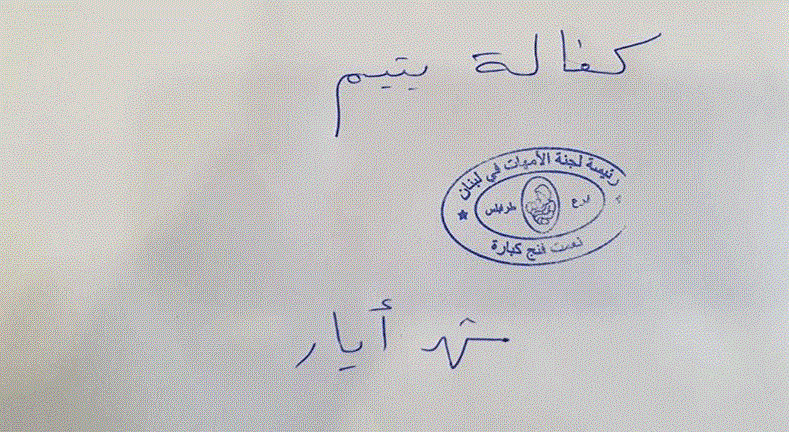 كفالة يتيم
رئيسة لجنة الأمهات في لبنان
فرع طرابلس
نعمت فنج كبارة
شهر أيار